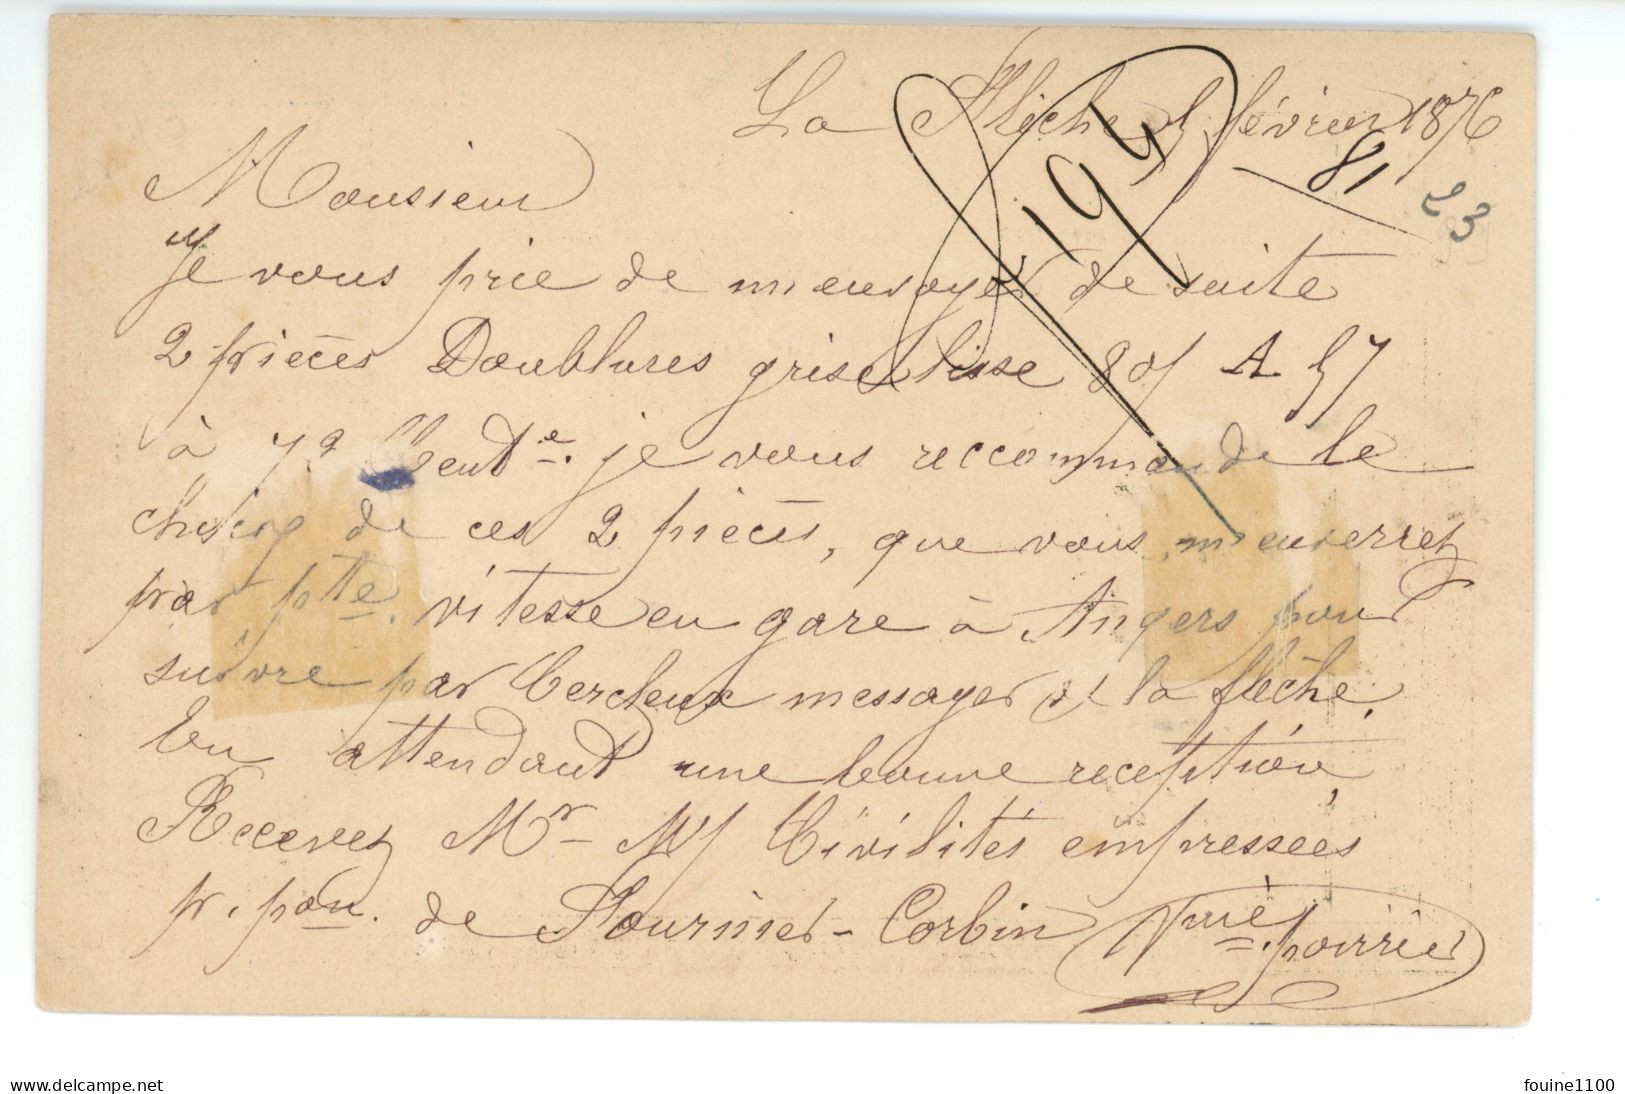 La Flèche 5 février 1876
194
81
23
Monsieur
Je vous prie de m'envoyer de suite
2 pièces Doublures grise lisse 80/ A 57
à 79 Cent e. je vous recommande le
choix de ces 2 pièces, que vous m'enverrez
par pte. vitesse en gare à Angers pour
suivre par Cercleux messager à la flèche.
En attendant une bonne réception
Recevez Mr Civilités empressées
pr. pon. de Fournier-Corbin
poirrier
delcampe.net
fouine1100